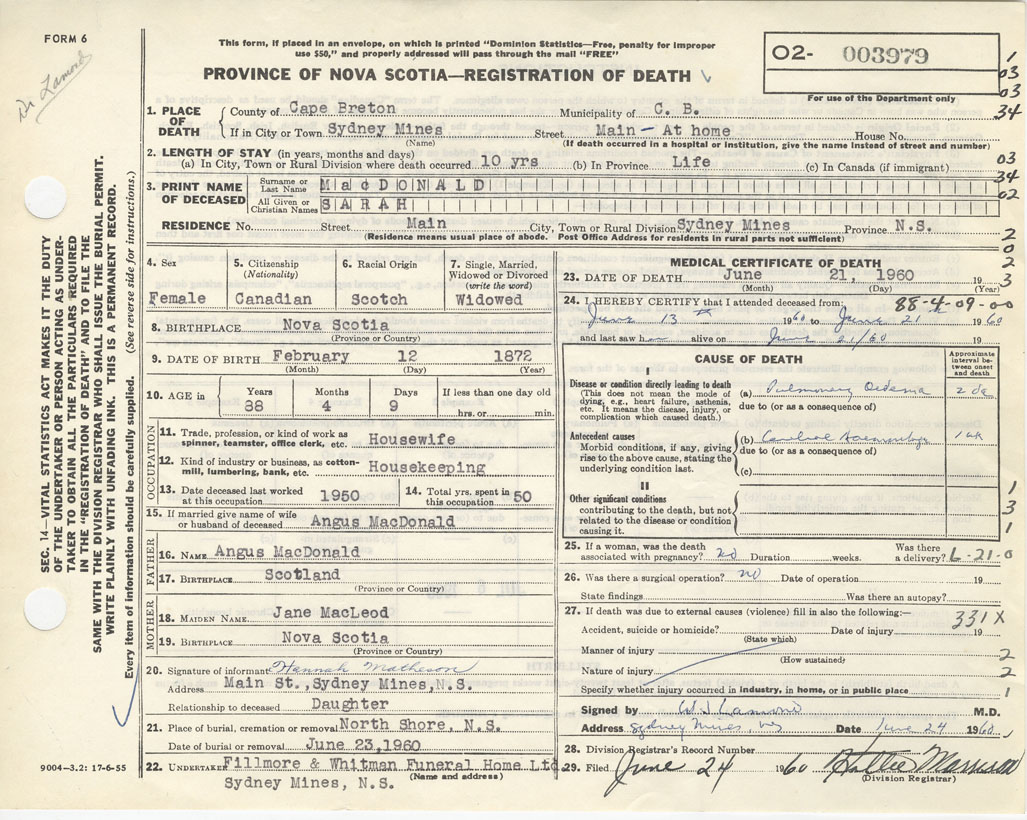 FORM 6
Dr Lamond
This form, if placed in an envelope, on which is printed "Dominion Statistics—Free, penalty for improper
use $50," and properly addressed will pass through the mail "FREE"
PROVINCE OF NOVA SCOTIA—REGISTRATION OF DEATH
O2- 003979
For use of the Department only
1
03
03
34
03
34
02
2
0
2
3
1. PLACE OF DEATH
County of Cape Breton Municipality of C. B.
If in City or Town Sydney Mines Street Main — At home House No.
(Name) (If death occurred in a hospital or institution, give the name instead of street and number)
2. LENGTH OF STAY (in years, months and days)
(a) In City, Town or Rural Division where death occurred 10 yrs (b) In Province Life (c) In Canada (if immigrant)
3. PRINT NAME OF DECEASED
Surname or Last Name MacDONALD
All Given or Christian Names SARAH
RESIDENCE No. Street Main City, Town or Rural Division Sydney Mines Province N.S.
(Residence means usual place of abode. Post Office Address for residents in rural parts not sufficient)
SEC. 14—VITAL STATISTICS ACT MAKES IT THE DUTY
OF THE UNDERTAKER OR PERSON ACTING AS UNDER-
TAKER TO OBTAIN ALL THE PARTICULARS REQUIRED
IN THE "REGISTRATION OF DEATH" AND TO FILE THE
SAME WITH THE DIVISION REGISTRAR WHO SHALL ISSUE THE BURIAL PERMIT.
WRITE PLAINLY WITH UNFADING INK. THIS IS A PERMANENT RECORD.
Every item of information should be carefully supplied. (See reverse side for instructions.)
4. Sex
Female
5. Citizenship
(Nationality)
Canadian
6. Racial Origin
Scotch
7. Single, Married,
Widowed or Divorced
(write the word)
Widowed
8. BIRTHPLACE Nova Scotia
(Province or Country)
9. DATE OF BIRTH February 12 1872
(Month) (Day) (Year)
10. AGE in
Years
88
Months
4
Days
9
If less than one day old
hrs. or min.
OCCUPATION
11. Trade, profession, or kind of work as
spinner, teamster, office clerk, etc. Housewife
12. Kind of industry or business, as cotton-
mill, lumbering, bank, etc. Housekeeping
13. Date deceased last worked
at this occupation 1950
14. Total yrs. spent in
this occupation 50
15. If married give name of wife
or husband of deceased Angus MacDonald
FATHER
16. NAME Angus MacDonald
17. BIRTHPLACE Scotland
(Province or Country)
MOTHER
18. MAIDEN NAME Jane MacLeod
19. BIRTHPLACE Nova Scotia
(Province or Country)
20. Signature of informant Hannah Matheson
Address Main St., Sydney Mines, N.S.
Relationship to deceased Daughter
21. Place of burial, cremation or removal North Shore, N.S.
Date of burial or removal June 23, 1960
22. UNDERTAKER Fillmore & Whitman Funeral Home Ltd.
(Name and address)
Sydney Mines, N.S.
9004-3.2: 17-6-55
MEDICAL CERTIFICATE OF DEATH
23. DATE OF DEATH June 21, 1960 19
(Month) (Day) (Year)
24. I HEREBY CERTIFY that I attended deceased from: 88-4-09-00
June 13th 1960 to June 21 1960
and last saw h alive on June 21/60 19
CAUSE OF DEATH
Approximate
interval be-
tween onset
and death
I
Disease or condition directly leading to death
(This does not mean the mode of
dying, e.g., heart failure, asthenia,
etc. It means the disease, injury, or
complication which caused death.)
(a) Pulmonary Oedema 2 da
due to (or as a consequence of)
Antecedent causes
Morbid conditions, if any, giving
rise to the above cause, stating the
underlying condition last.
(b) Cerebral Haemorrhage 1 wk
due to (or as a consequence of)
(c)
II
Other significant conditions
contributing to the death, but not
related to the disease or condition
causing it.
1
3
1
25. If a woman, was the death
associated with pregnancy? No Duration weeks. Was there
a delivery? 6-21-0
26. Was there a surgical operation? No Date of operation 19
State findings Was there an autopsy?
27. If death was due to external causes (violence) fill in also the following:—
331X
Accident, suicide or homicide? Date of injury 19
(State which)
Manner of injury 2
(How sustained)
Nature of injury 2
Specify whether injury occurred in industry, in home, or in public place 1
Signed by W J Lamond M.D.
Address Sydney Mines, NS Date June 24 1960
28. Division Registrar's Record Number
29. Filed June 24 1960 Hattie
(Division Registrar)